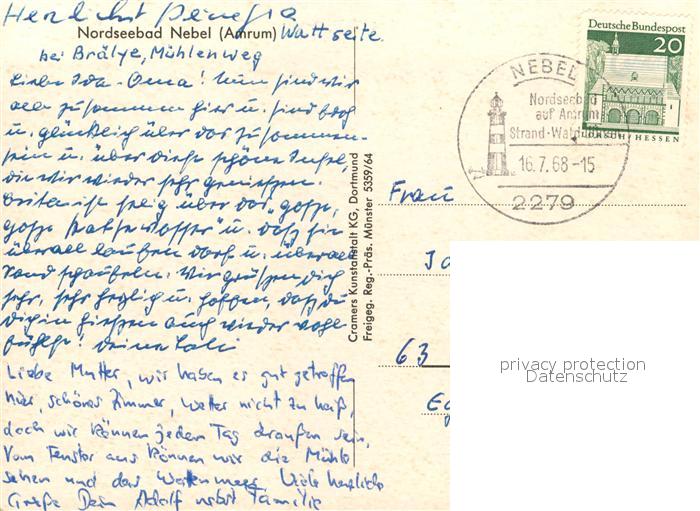 Herzlichst
Nordseebad Nebel (Amrum) Wattseite
bei Brälye, Mühlenweg
Liebe Ida-Oma! Nun sind wir
alle zusammen hier u. sind froh
u. glücklich über das Zusammen-
sein u. über diese schöne Insel,
die wir wieder sehr genießen.
ist selig über das "große,
große Badewasser" u. daß sie
überall laufen darf u. überall
Sand schaufeln. Wir grüßen Dich
sehr, sehr herzlich u. hoffen, daß du
dich in Gießen auch wieder wohl
fühlst! Deine
Liebe Mutter, wir haben es gut getroffen
hier, schönes Zimmer, Wetter nicht zu heiß,
doch wir können jeden Tag draußen sein.
Vom Fenster aus können wir die Mühle
sehen und das Wattenmeer. Viele herzliche
Grüße Dein Adolf nebst Familie
Cramers Kunstanstalt KG, Dortmund
Freigeg. Reg.-Präs. Münster 5359/64
Deutsche Bundespost
20
LORSCH / HESSEN
NEBEL
Nordseebad
auf Amrum
Strand · Wald · Dünen
16.7.68-15
2279
Frau
63
privacy protection
Datenschutz